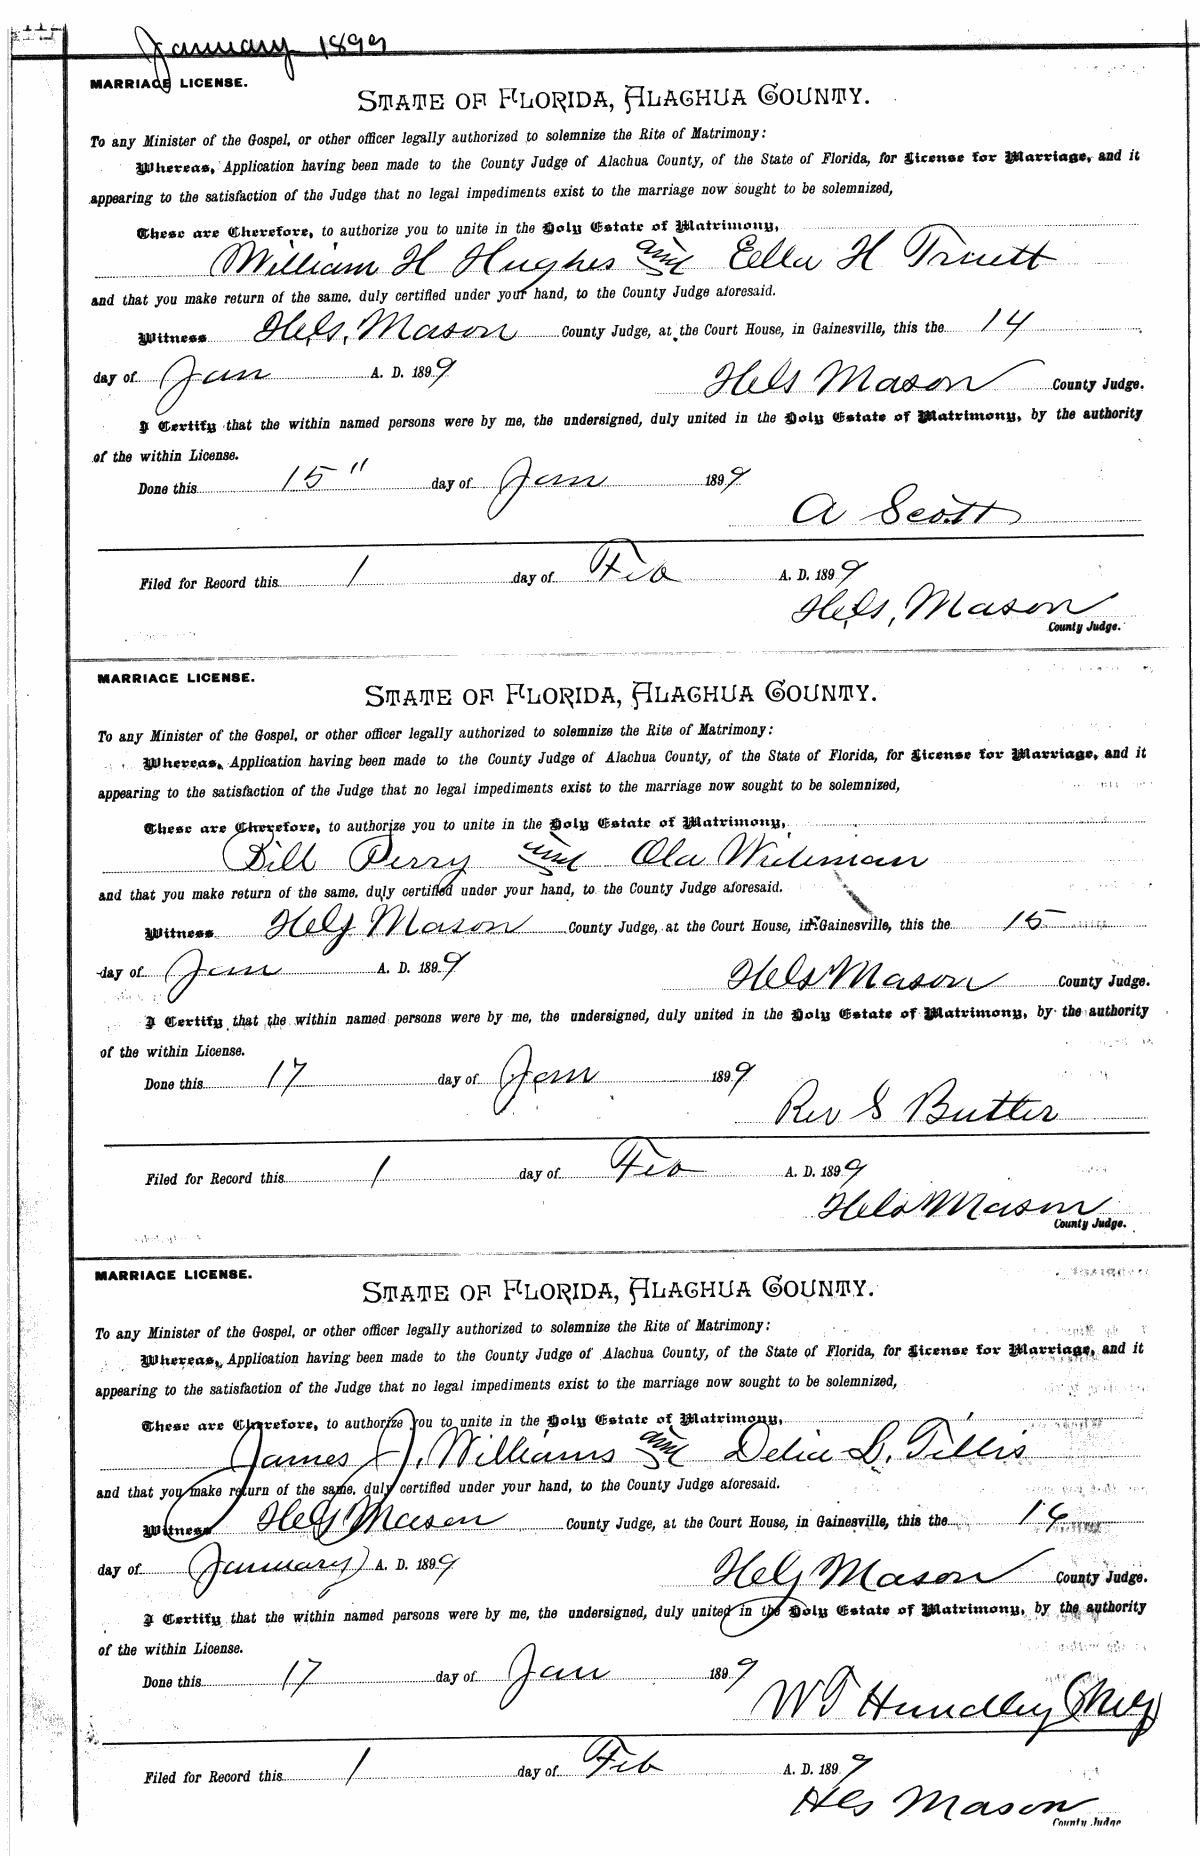 January 1899
MARRIAGE LICENSE.
STATE OF FLORIDA, ALACHUA COUNTY.
To any Minister of the Gospel, or other officer legally authorized to solemnize the Rite of Matrimony:
Whereas, Application having been made to the County Judge of Alachua County, of the State of Florida, for License for Marriage, and it
appearing to the satisfaction of the Judge that no legal impediments exist to the marriage now sought to be solemnized,
These are Therefore, to authorize you to unite in the Holy Estate of Matrimony,
William H Hughes and Ella H Truett
and that you make return of the same, duly certified under your hand, to the County Judge aforesaid.
Witness Mason County Judge, at the Court House, in Gainesville, this the 14
day of Jan A. D. 1899 Mason County Judge.
I Certify that the within named persons were by me, the undersigned, duly united in the Holy Estate of Matrimony, by the authority
of the within License.
Done this 15" day of Jan 1899
A Scott
Filed for Record this 1 day of Feb A. D. 1899
Mason
County Judge.
MARRIAGE LICENSE.
STATE OF FLORIDA, ALACHUA COUNTY.
To any Minister of the Gospel, or other officer legally authorized to solemnize the Rite of Matrimony:
Whereas, Application having been made to the County Judge of Alachua County, of the State of Florida, for License for Marriage, and it
appearing to the satisfaction of the Judge that no legal impediments exist to the marriage now sought to be solemnized,
These are Therefore, to authorize you to unite in the Holy Estate of Matrimony,
Bill Perry and Ola
and that you make return of the same, duly certified under your hand, to the County Judge aforesaid.
Witness Mason County Judge, at the Court House, in Gainesville, this the 15
day of Jan A. D. 1899 Mason County Judge.
I Certify that the within named persons were by me, the undersigned, duly united in the Holy Estate of Matrimony, by the authority
of the within License.
Done this 17 day of Jan 1899
Rev S Butler
Filed for Record this 1 day of Feb A. D. 1899
Mason
County Judge.
MARRIAGE LICENSE.
STATE OF FLORIDA, ALACHUA COUNTY.
To any Minister of the Gospel, or other officer legally authorized to solemnize the Rite of Matrimony:
Whereas, Application having been made to the County Judge of Alachua County, of the State of Florida, for License for Marriage, and it
appearing to the satisfaction of the Judge that no legal impediments exist to the marriage now sought to be solemnized,
These are Therefore, to authorize you to unite in the Holy Estate of Matrimony,
James J. Williams and Delia L. Tillis
and that you make return of the same, duly certified under your hand, to the County Judge aforesaid.
Witness Mason County Judge, at the Court House, in Gainesville, this the 16
day of January A. D. 1899 Mason County Judge.
I Certify that the within named persons were by me, the undersigned, duly united in the Holy Estate of Matrimony, by the authority
of the within License.
Done this 17 day of Jan 1899
W T Hundley
Filed for Record this 1 day of Feb A. D. 1899
Mason
County Judge